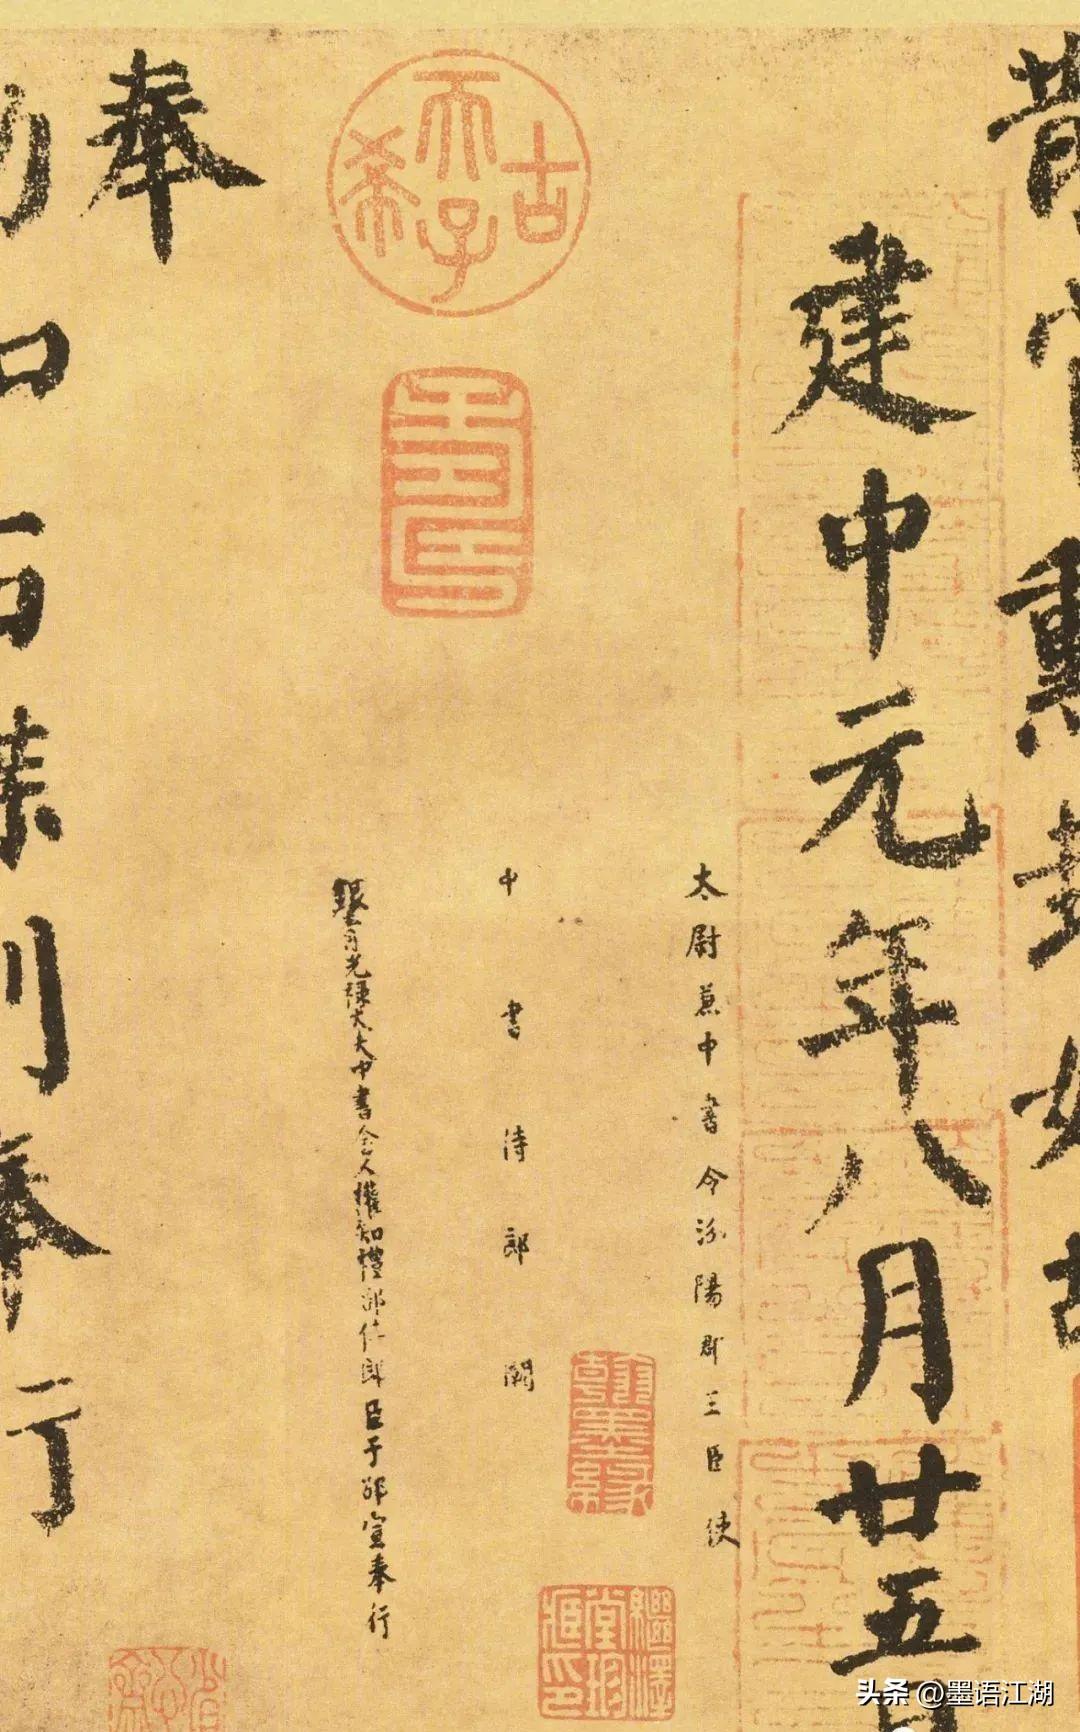 散官勳封如故
建中元年八月廿五日
太尉兼中書令汾陽郡王臣使
中書侍郎闕
銀青光祿大夫中書舍人權知禮部侍郎臣于邵宣奉行
古希天子
壽
奉
勅如右牒到奉行
头条 @墨语江湖